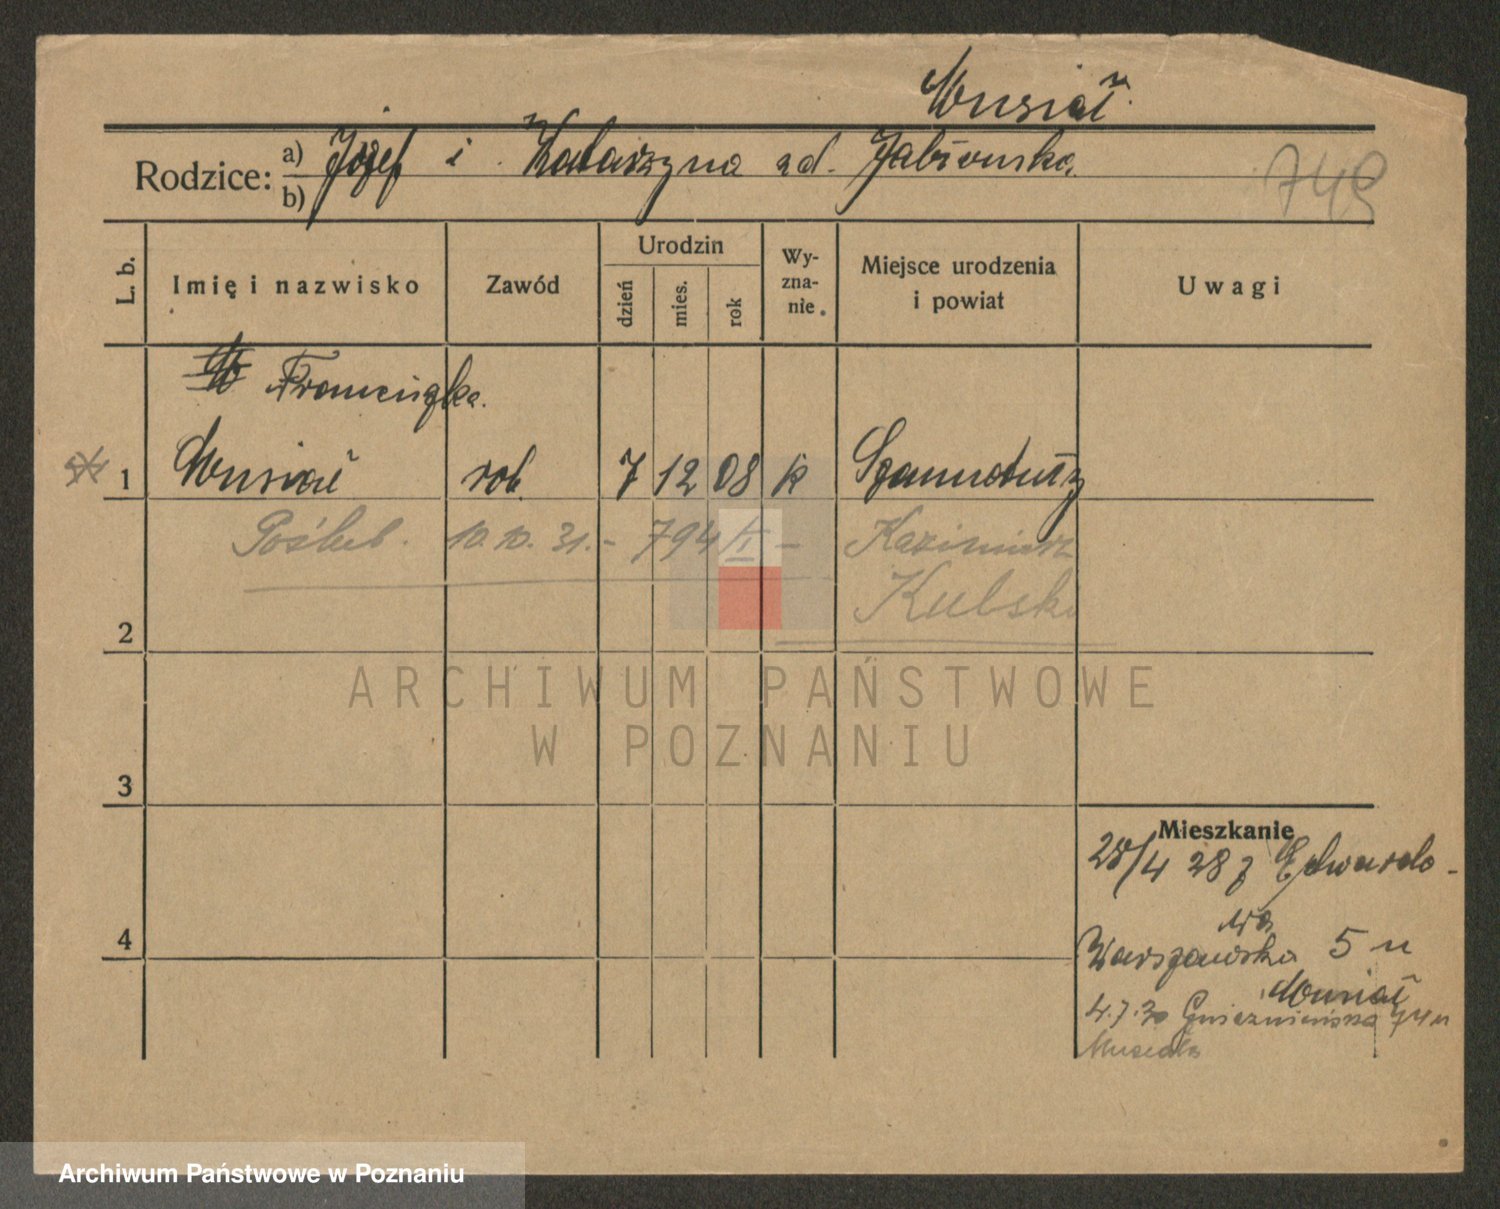 Musiał
Rodzice: a) Józef i Katarzyna zd. Jabłonska
b)
749
L. b. Imię i nazwisko Zawód Urodzin dzień mies. rok Wy-zna-nie Miejsce urodzenia i powiat Uwagi
Franciszka
1 Musiał rob. 7 12 08 k Szamotuły
Poślub. 10.10.31.- 794/I - Kazimierz
Kubski
2
3
Mieszkanie
28/4 28 z Edwardo-
wa
4
Warszawska 5 u
Musiał
4.7.30 Gnieznieńska 74 u
Musiała
ARCHIWUM PAŃSTWOWE
W POZNANIU
Archiwum Państwowe w Poznaniu